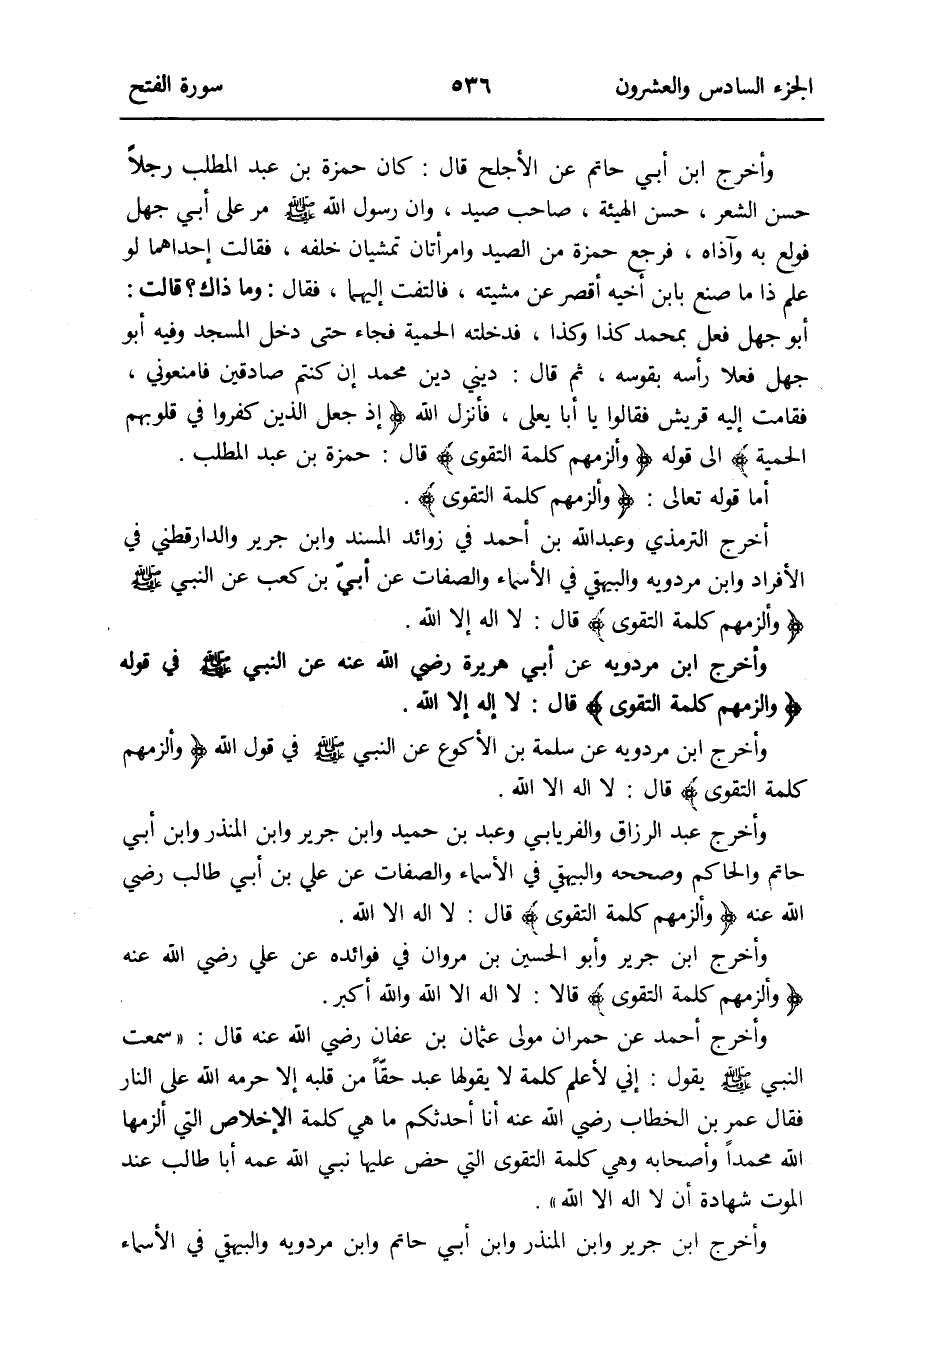 الجزء السادس والعشرون ٥٣٦ سورة الفتح
وأخرج ابن أبي حاتم عن الأجلح قال : كان حمزة بن عبد المطلب رجلاً
حسن الشعر ، حسن الهيئة ، صاحب صيد ، وان رسول الله ﷺ مر على أبي جهل
فولع به وآذاه ، فرجع حمزة من الصيد وامرأتان تمشيان خلفه ، فقالت إحداهما لو
علم ذا ما صنع بابن أخيه أقصر عن مشيته ، فالتفت إليهما ، فقال : وما ذاك؟ قالت :
أبو جهل فعل بمحمد كذا وكذا ، فدخلته الحمية فجاء حتى دخل المسجد وفيه أبو
جهل فعلا رأسه بقوسه ، ثم قال : ديني دين محمد إن كنتم صادقين فامنعوني ،
فقامت إليه قريش فقالوا يا أبا يعلى ، فأنزل الله ﴿ إذ جعل الذين كفروا في قلوبهم
الحمية ﴾ الى قوله ﴿ وألزمهم كلمة التقوى ﴾ قال : حمزة بن عبد المطلب .
أما قوله تعالى : ﴿ وألزمهم كلمة التقوى ﴾ .
أخرج الترمذي وعبدالله بن أحمد في زوائد المسند وابن جرير والدارقطني في
الأفراد وابن مردويه والبيهقي في الأسماء والصفات عن أبيّ بن كعب عن النبي ﷺ
﴿ وألزمهم كلمة التقوى ﴾ قال : لا اله إلا الله .
وأخرج ابن مردويه عن أبي هريرة رضي الله عنه عن النبي ﷺ في قوله
﴿ والزمهم كلمة التقوى ﴾ قال : لا إله إلا الله .
وأخرج ابن مردويه عن سلمة بن الأكوع عن النبي ﷺ في قول الله ﴿ وألزمهم
كلمة التقوى ﴾ قال : لا اله الا الله .
وأخرج عبد الرزاق والفريابي وعبد بن حميد وابن جرير وابن المنذر وابن أبي
حاتم والحاكم وصححه والبيهقي في الأسماء والصفات عن علي بن أبي طالب رضي
الله عنه ﴿ وألزمهم كلمة التقوى ﴾ قال : لا اله الا الله .
وأخرج ابن جرير وأبو الحسين بن مروان في فوائده عن علي رضي الله عنه
﴿ وألزمهم كلمة التقوى ﴾ قالا : لا اله الا الله والله أكبر .
وأخرج أحمد عن حمران مولى عثمان بن عفان رضي الله عنه قال : « سمعت
النبي ﷺ يقول : إني لأعلم كلمة لا يقولها عبد حقّاً من قلبه إلا حرمه الله على النار
فقال عمر بن الخطاب رضي الله عنه أنا أحدثكم ما هي كلمة الإخلاص التي ألزمها
الله محمداً وأصحابه وهي كلمة التقوى التي حض عليها نبي الله عمه أبا طالب عند
الموت شهادة أن لا اله الا الله » .
وأخرج ابن جرير وابن المنذر وابن أبي حاتم وابن مردويه والبيهقي في الأسماء